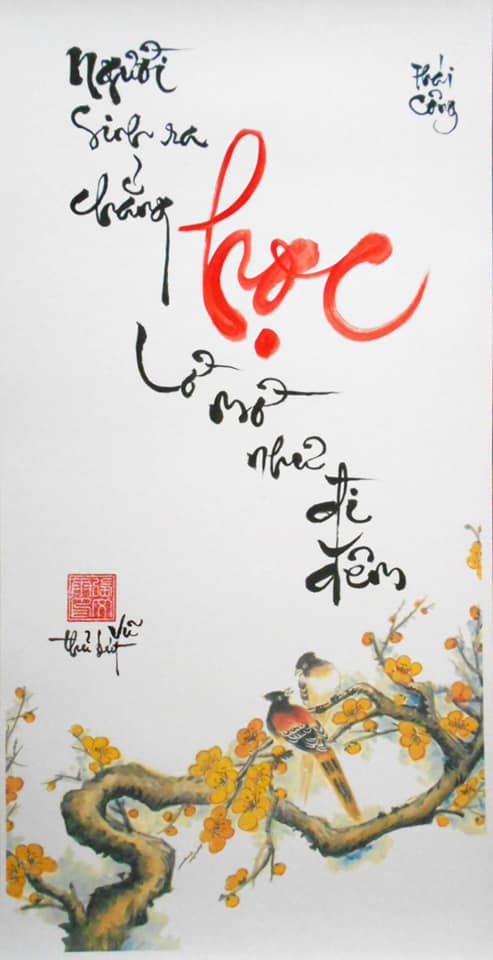 Người
sinh ra
chẳng
học
Lờ mờ
như
đi
đêm
Thái
Công
Vũ
thủ bút